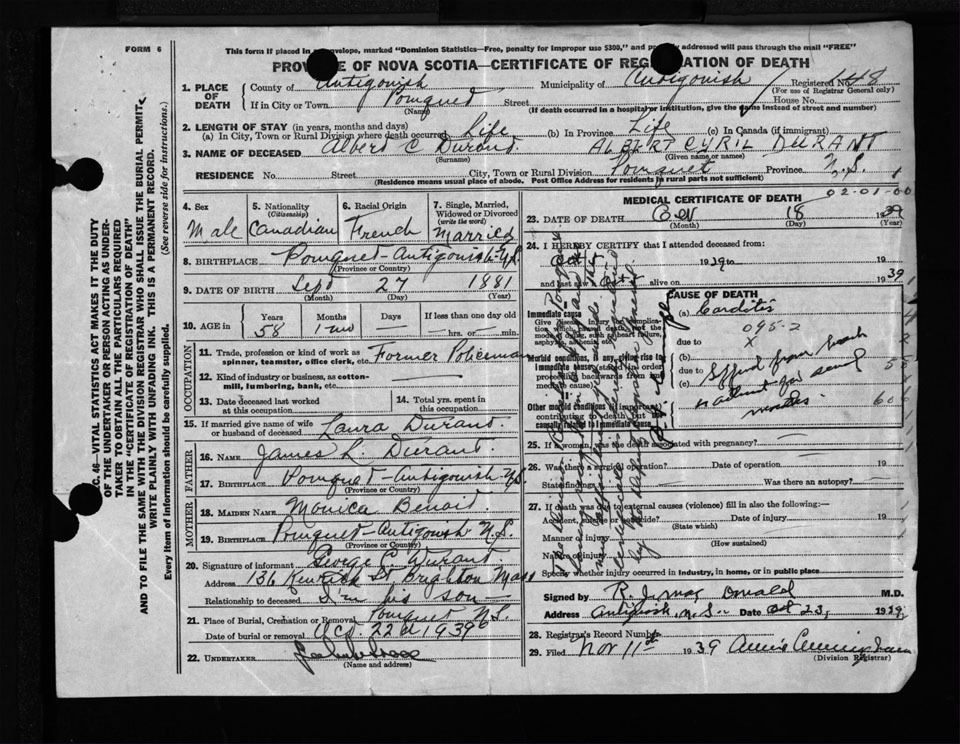 FORM 6
This form if placed in envelope, marked "Dominion Statistics—Free, penalty for improper use $300," and addressed will pass through the mail "FREE"
PROVINCE OF NOVA SCOTIA—CERTIFICATE OF REGISTRATION OF DEATH
1. PLACE OF DEATH
County of Antigonish Municipality of Antigonish Registered No. 648
(For use of Registrar General only)
If in City or Town Pomquet Street House No.
(Name) (If death occurred in a hospital or institution, give the name instead of street and number)
2. LENGTH OF STAY (in years, months and days)
(a) In City, Town or Rural Division where death occurred Life (b) In Province Life (c) In Canada (if immigrant)
3. NAME OF DECEASED Albert C Durant ALBERT CYRIL DURANT
(Surname) (Given name or names)
RESIDENCE No. Street City, Town or Rural Division Pomquet Province N.S.
(Residence means usual place of abode. Post Office Address for residents in rural parts not sufficient)
4. Sex
Male
5. Nationality
(Citizenship)
Canadian
6. Racial Origin
French
7. Single, Married, Widowed or Divorced
(write the word)
Married
8. BIRTHPLACE Pomquet-Antigonish-N.S.
(Province or Country)
9. DATE OF BIRTH Sept 27 1881
(Month) (Day) (Year)
10. AGE in
Years Months Days If less than one day old
58 1 mo — hrs. or min.
OCCUPATION
11. Trade, profession or kind of work as spinner, teamster, office clerk, etc. Former Policeman
12. Kind of industry or business, as cotton-mill, lumbering, bank, etc. —
13. Date deceased last worked at this occupation
14. Total yrs. spent in this occupation
15. If married give name of wife or husband of deceased Laura Durant.
FATHER
16. NAME James L. Durant.
17. BIRTHPLACE Pomquet-Antigonish-N.S.
(Province or Country)
MOTHER
18. MAIDEN NAME Monica Benoit.
19. BIRTHPLACE Pomquet-Antigonish N.S.
(Province or Country)
20. Signature of informant George A Durant
Address 136 Kenrick St Brighton Mass
Relationship to deceased I'm his son—
21. Place of Burial, Cremation or Removal Pomquet N.S.
Date of burial or removal Oct. 22d 1939
22. UNDERTAKER
(Name and address)
MEDICAL CERTIFICATE OF DEATH
02-01-00
23. DATE OF DEATH Oct 18 1939
(Month) (Day)
24. I HEREBY CERTIFY that I attended deceased from:
Oct 1939 to 19
and last saw alive on 1939
CAUSE OF DEATH
Immediate cause
Give disease, injury or complication which caused death, not the mode of dying, such as heart failure, asphyxia, asthenia, etc.
(a) Carditis
095-2
due to X
Morbid conditions, if any, giving rise to immediate cause (stated in order proceeding backwards from immediate cause)
(b)
due to
(c)
Other morbid conditions (if important) contributing to death but not causally related to immediate cause
25. If a woman, was the death associated with pregnancy?
26. Was there a surgical operation? Date of operation 19
State findings Was there an autopsy?
27. If death was due to external causes (violence) fill in also the following:—
Accident, suicide or homicide? Date of injury 19
(State which)
Manner of injury
(How sustained)
Nature of injury
Specify whether injury occurred in industry, in home, or in public place
Signed by M.D.
Address Antigonish N.S. Date Oct 23, 1939
28. Registrar's Record Number
29. Filed Nov 11th 1939
(Division Registrar)
SEC. 46—VITAL STATISTICS ACT MAKES IT THE DUTY
OF THE UNDERTAKER OR PERSON ACTING AS UNDER-
TAKER TO OBTAIN ALL THE PARTICULARS REQUIRED
IN THE "CERTIFICATE OF REGISTRATION OF DEATH"
AND TO FILE THE SAME WITH THE DIVISION REGISTRAR WHO SHALL ISSUE THE BURIAL PERMIT.
WRITE PLAINLY WITH UNFADING INK. THIS IS A PERMANENT RECORD.
Every item of information should be carefully supplied. (See reverse side for instructions.)